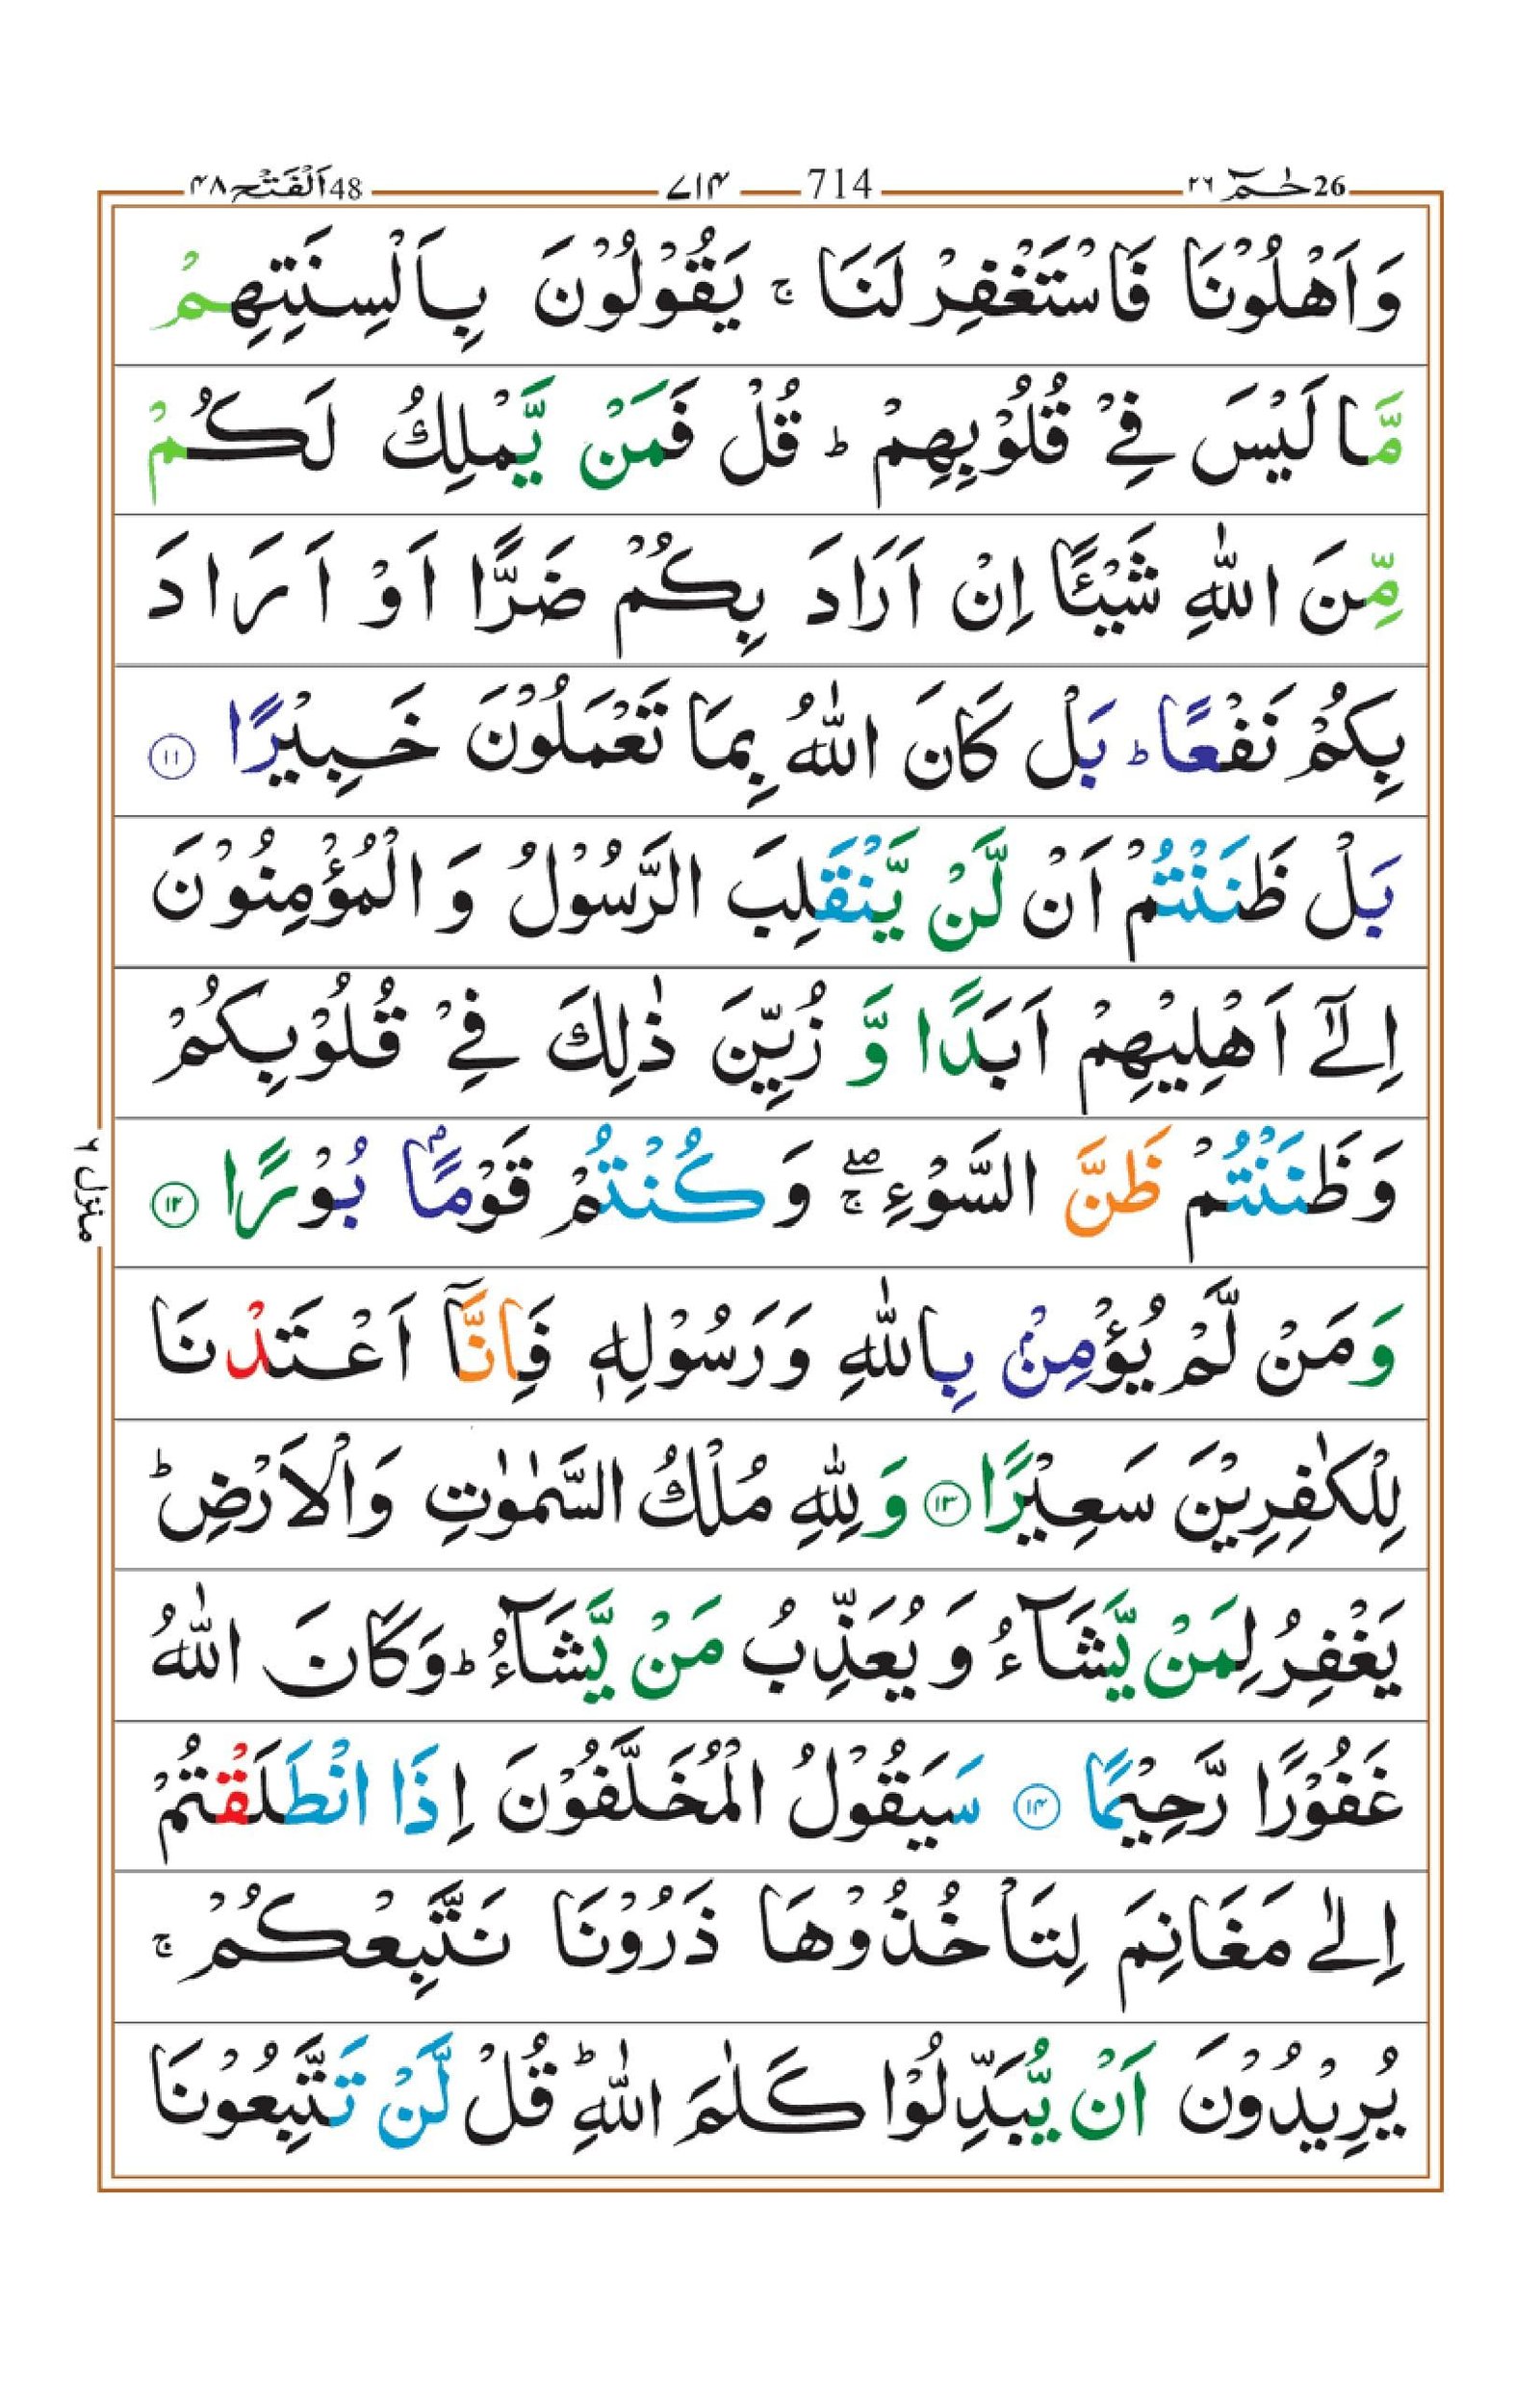 26 حٰمٓ ٢٦ 714 ٧١٤ 48 اَلْفَتْح ٤٨
وَاَهْلُوْنَا فَاسْتَغْفِرْ لَنَا ۚ يَقُوْلُوْنَ بِاَلْسِنَتِهِمْ
مَّا لَيْسَ فِيْ قُلُوْبِهِمْ ؕ قُلْ فَمَنْ يَّمْلِكُ لَكُمْ
مِّنَ اللّٰهِ شَيْـًٔا اِنْ اَرَادَ بِكُمْ ضَرًّا اَوْ اَرَادَ
بِكُمْ نَفْعًا ؕ بَلْ كَانَ اللّٰهُ بِمَا تَعْمَلُوْنَ خَبِيْرًا ۝١١
بَلْ ظَنَنْتُمْ اَنْ لَّنْ يَّنْقَلِبَ الرَّسُوْلُ وَالْمُؤْمِنُوْنَ
اِلٰٓى اَهْلِيْهِمْ اَبَدًا وَّ زُيِّنَ ذٰلِكَ فِيْ قُلُوْبِكُمْ
وَظَنَنْتُمْ ظَنَّ السَّوْءِ ۖۚ وَكُنْتُمْ قَوْمًۢا بُوْرًا ۝١٢
منزل ٦
وَمَنْ لَّمْ يُؤْمِنْۢ بِاللّٰهِ وَرَسُوْلِهٖ فَاِنَّاۤ اَعْتَدْنَا
لِلْكٰفِرِيْنَ سَعِيْرًا ۝١٣ وَلِلّٰهِ مُلْكُ السَّمٰوٰتِ وَالْاَرْضِ ؕ
يَغْفِرُ لِمَنْ يَّشَآءُ وَيُعَذِّبُ مَنْ يَّشَآءُ ؕ وَكَانَ اللّٰهُ
غَفُوْرًا رَّحِيْمًا ۝١٤ سَيَقُوْلُ الْمُخَلَّفُوْنَ اِذَا انْطَلَقْتُمْ
اِلٰى مَغَانِمَ لِتَاْخُذُوْهَا ذَرُوْنَا نَتَّبِعْكُمْ ۚ
يُرِيْدُوْنَ اَنْ يُّبَدِّلُوْا كَلٰمَ اللّٰهِ ؕ قُلْ لَّنْ تَتَّبِعُوْنَا